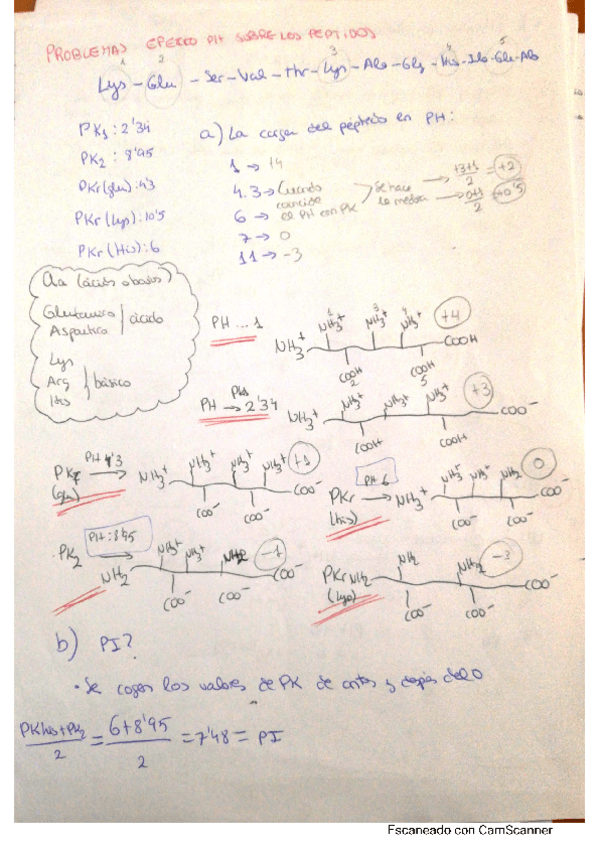 PROBLEMAS EFECTO PH SOBRE LOS PEPTIDOS
1 2 3 4 5
Lys - Glu - Ser - Val - Thr - Lys - Ala - Gly - His - Ala - Glu - Ala
PK1 : 2'34
PK2 : 8'95
PKr (glu) : 4'3
PKr (Lys) : 10'5
PKr (His) : 6
a) La carga del péptido en PH :
1 → +4
4.3 → Cuando coincide el PH con PK
Se hace la media
+3+1 / 2 = +2
0+1 / 2 = +0'5
6 →
7 → 0
11 → -3
Aa (ácidos o basicos)
Glutamico
Aspartico
ácido
Lys
Arg
His
básico
PH ... 1
NH3+ NH3+ NH3+ NH3+ COOH
1 3 4
COOH COOH
2 5
+4
PH → 2'34
PK1
NH3+ NH3+ NH3+ NH3+ COO-
COOH COOH
+3
PKr (glu) PH 4'3 →
NH3+ NH3+ NH3+ NH3+ COO-
COO- COO-
+1
PKr (his) PH 6 →
NH3+ NH3+ NH3+ NH2 COO-
COO- COO-
0
PK2 PH : 8'95 →
NH2 NH3+ NH3+ NH2 COO-
COO- COO-
-1
PKr (Lys)
NH2 NH2 NH2 COO-
COO- COO-
-3
b) PI?
· Se cogen los valores de PK de antes y depés del 0
PKhis + PK2 / 2 = 6 + 8'95 / 2 = 7'48 = PI
Escaneado con CamScanner